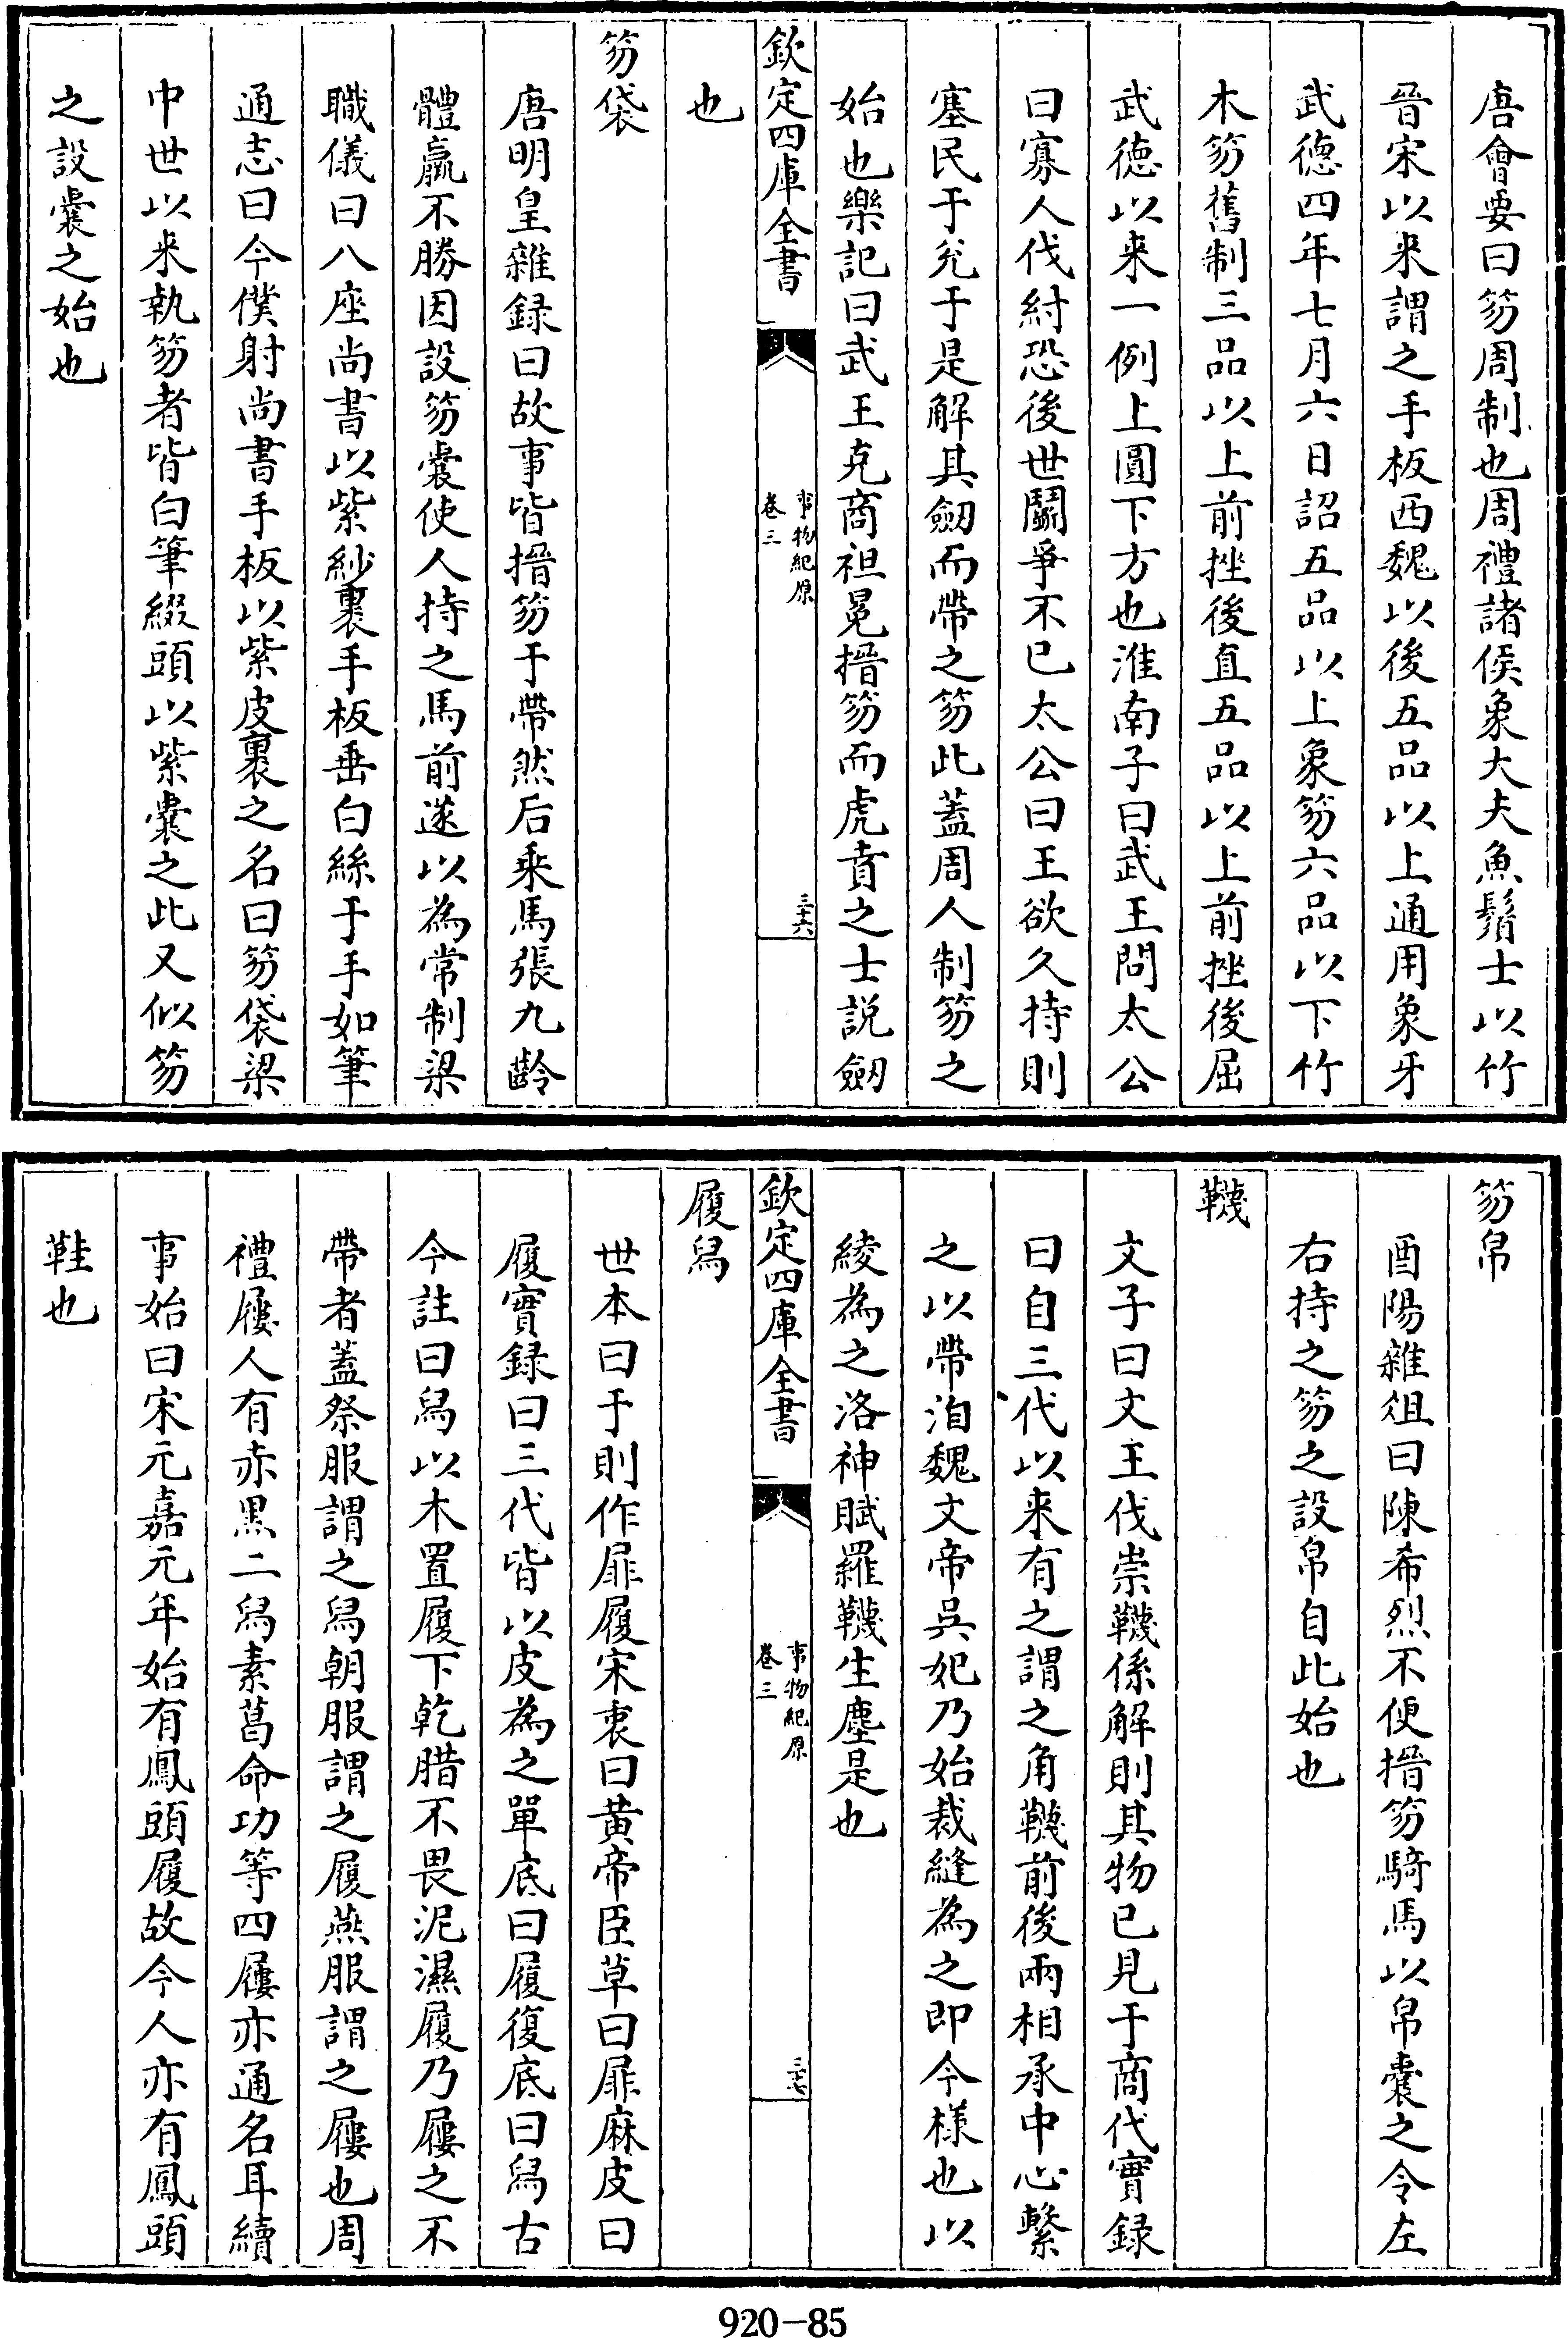 唐會要曰笏周制也周禮諸侯象大夫魚鬚士以竹
晉宋以来謂之手板西魏以後五品以上通用象牙
武徳四年七月六日詔五品以上象笏六品以下竹
木笏舊制三品以上前挫後直五品以上前挫後屈
武徳以来一例上圓下方也淮南子曰武王問太公
曰寡人伐紂恐後世鬭爭不已太公曰王欲久持則
塞民于兊于是解其劒而帶之笏此蓋周人制笏之
始也樂記曰武王克商袒冕搢笏而虎賁之士説劒
欽定四庫全書
事物紀原
卷三
三十六
也
笏袋
唐明皇雜録曰故事皆搢笏于帶然后乘馬張九齡
體羸不勝因設笏囊使人持之馬前遂以為常制梁
職儀曰八座尚書以紫紗裹手板垂白絲于手如筆
通志曰今僕射尚書手板以紫皮裹之名曰笏袋梁
中世以来執笏者皆白筆綴頭以紫囊之此又似笏
之設囊之始也
笏帛
酉陽雜俎曰陳希烈不便搢笏騎馬以帛囊之令左
右持之笏之設帛自此始也
韈
文子曰文王伐崇韈係解則其物已見于商代實録
曰自三代以来有之謂之角韈前後兩相承中心繫
之以帶洎魏文帝吳妃乃始裁縫為之即今様也以
綾為之洛神賦羅韈生塵是也
欽定四庫全書
事物紀原
卷三
三十七
履舄
世本曰于則作屝履宋衷曰黄帝臣草曰屝麻皮曰
履實録曰三代皆以皮為之單底曰履復底曰舄古
今註曰舄以木置履下乾腊不畏泥濕履乃屨之不
帶者蓋祭服謂之舄朝服謂之履燕服謂之屨也周
禮屨人有赤黒二舄素葛命功等四屨亦通名耳續
事始曰宋元嘉元年始有鳳頭履故今人亦有鳳頭
鞋也
920-85